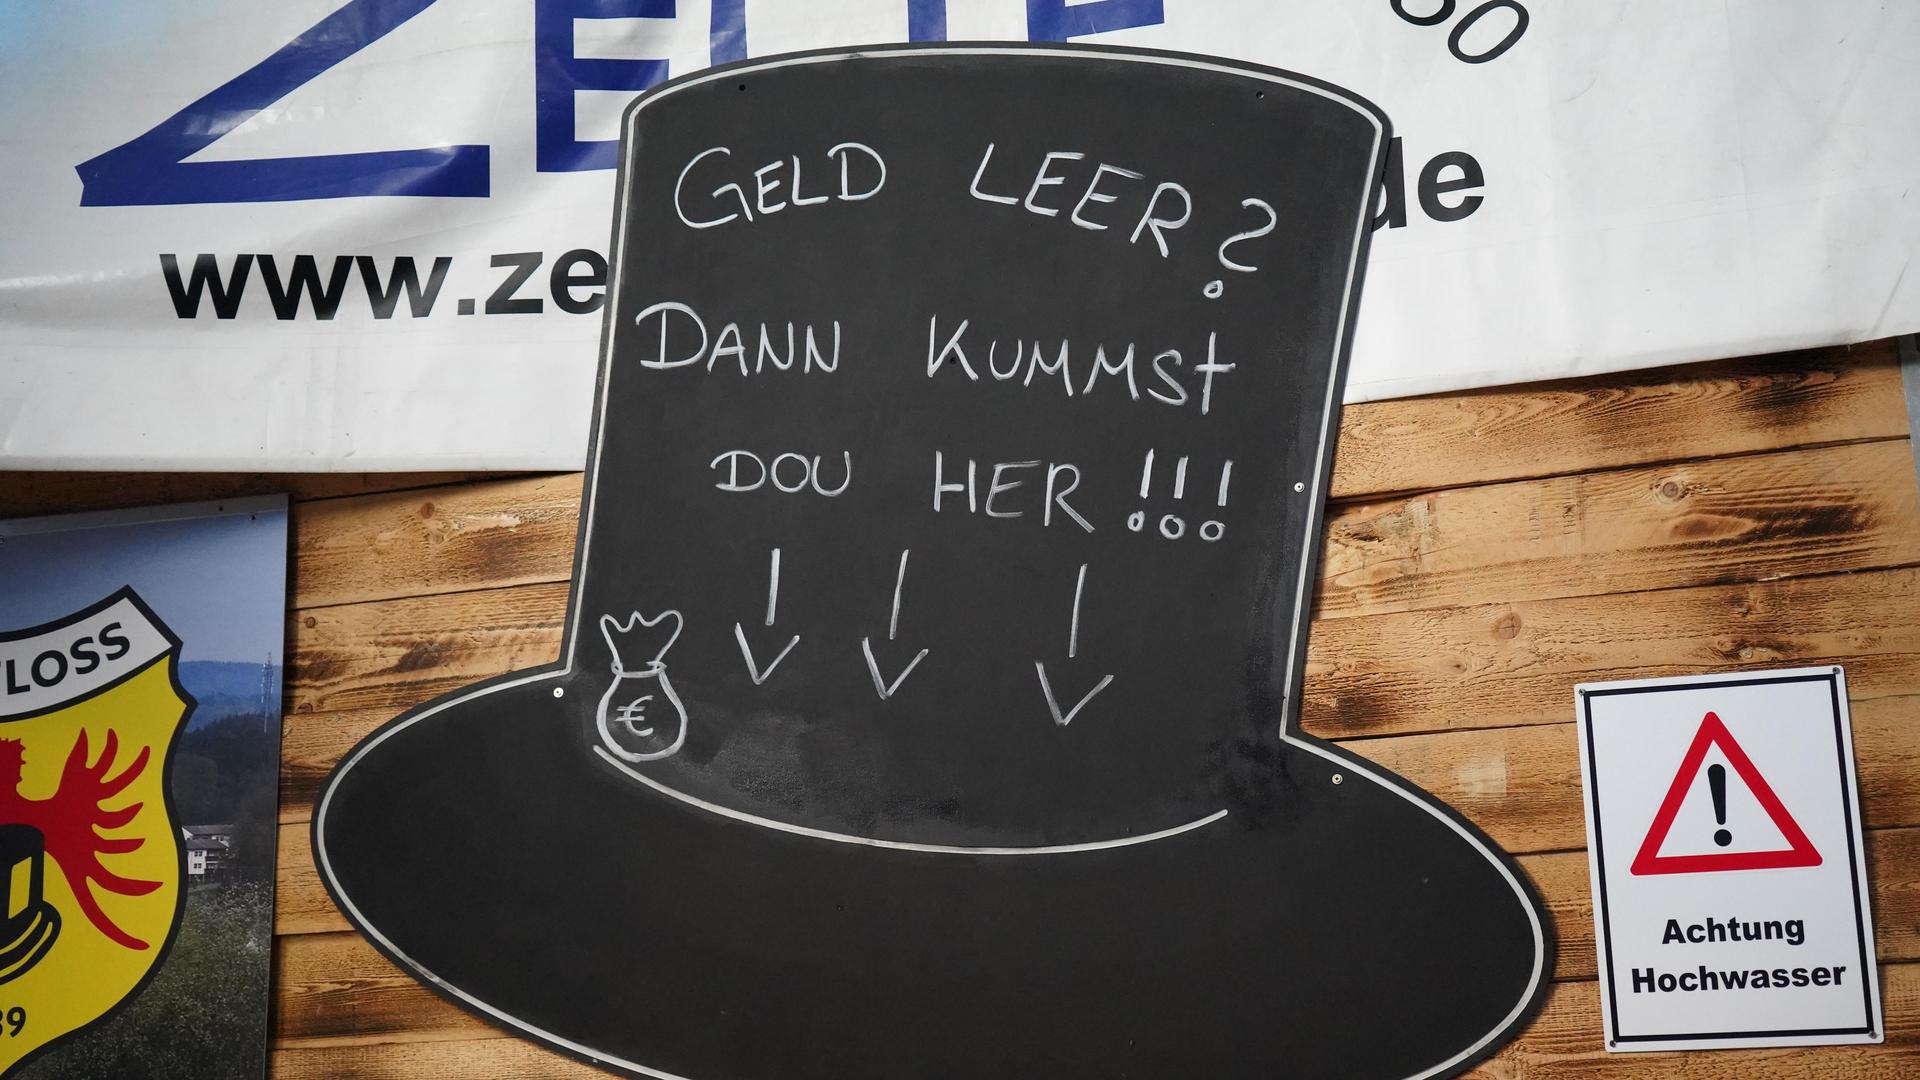 www.ze
de
GELD LEER?
DANN KUMMST
DOU HER!!!
€
LOSS
Achtung
Hochwasser